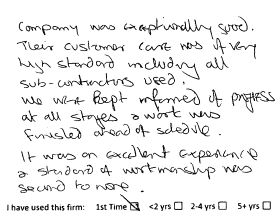 Company was exceptionally good.
Their customer care was of very
high standard including all
sub-contractors used.
We were kept informed of progress
at all stages & work was
finished ahead of schedule.
It was an excellent experience
& standard of workmanship was
second to none.
I have used this firm: 1st Time ☑ <2 yrs ☐ 2-4 yrs ☐ 5+ yrs ☐